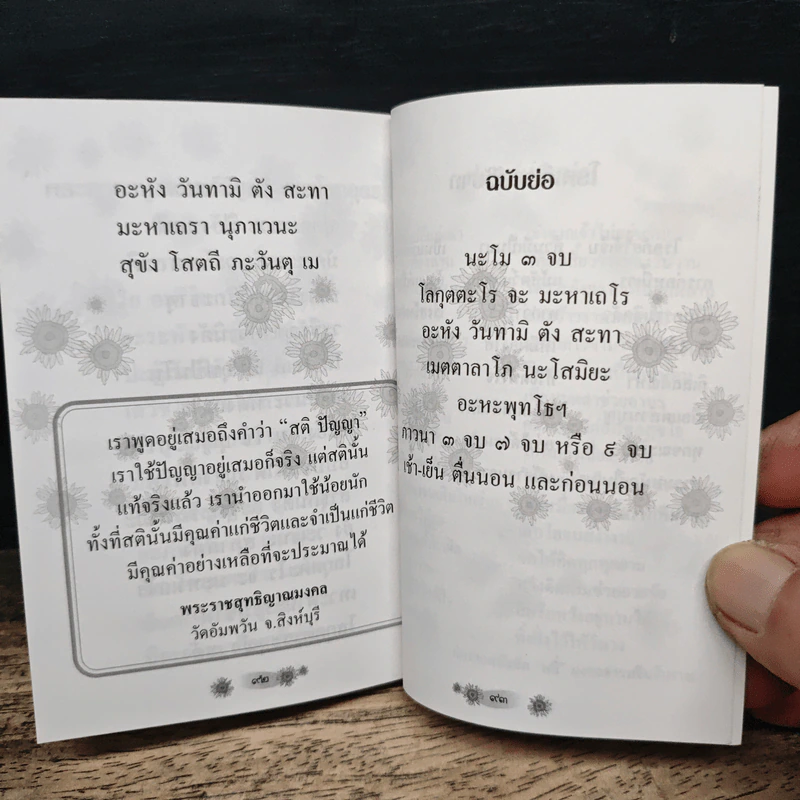 อะหัง วันทามิ ตัง สะทา
มะหาเถรา นุภาเวนะ
สุขัง โสตถี ภะวันตุ เม
เราพูดอยู่เสมอถึงคำว่า “สติ ปัญญา”
เราใช้ปัญญาอยู่เสมอก็จริง แต่สตินั้น
แท้จริงแล้ว เรานำออกมาใช้น้อยนัก
ทั้งที่สตินั้นมีคุณค่าแก่ชีวิตและจำเป็นแก่ชีวิต
มีคุณค่าอย่างเหลือที่จะประมาณได้
พระราชสุทธิญาณมงคล
วัดอัมพวัน จ.สิงห์บุรี
๑๙๒
ฉบับย่อ
นะโม ๓ จบ
โลกุตตะโร จะ มะหาเถโร
อะหัง วันทามิ ตัง สะทา
เมตตาลาโภ นะโสมิยะ
อะหะพุทโธฯ
ภาวนา ๓ จบ ๗ จบ หรือ ๙ จบ
เช้า-เย็น ตื่นนอน และก่อนนอน
๑๙๓